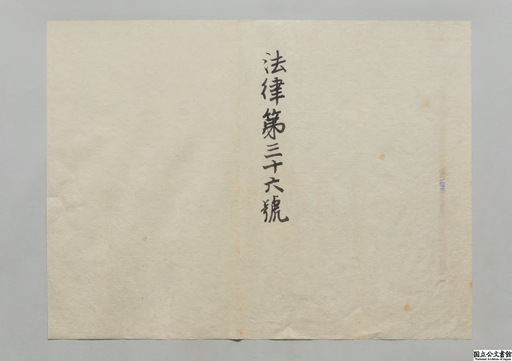 法律第三十六號
国立公文書館
National Archives of Japan